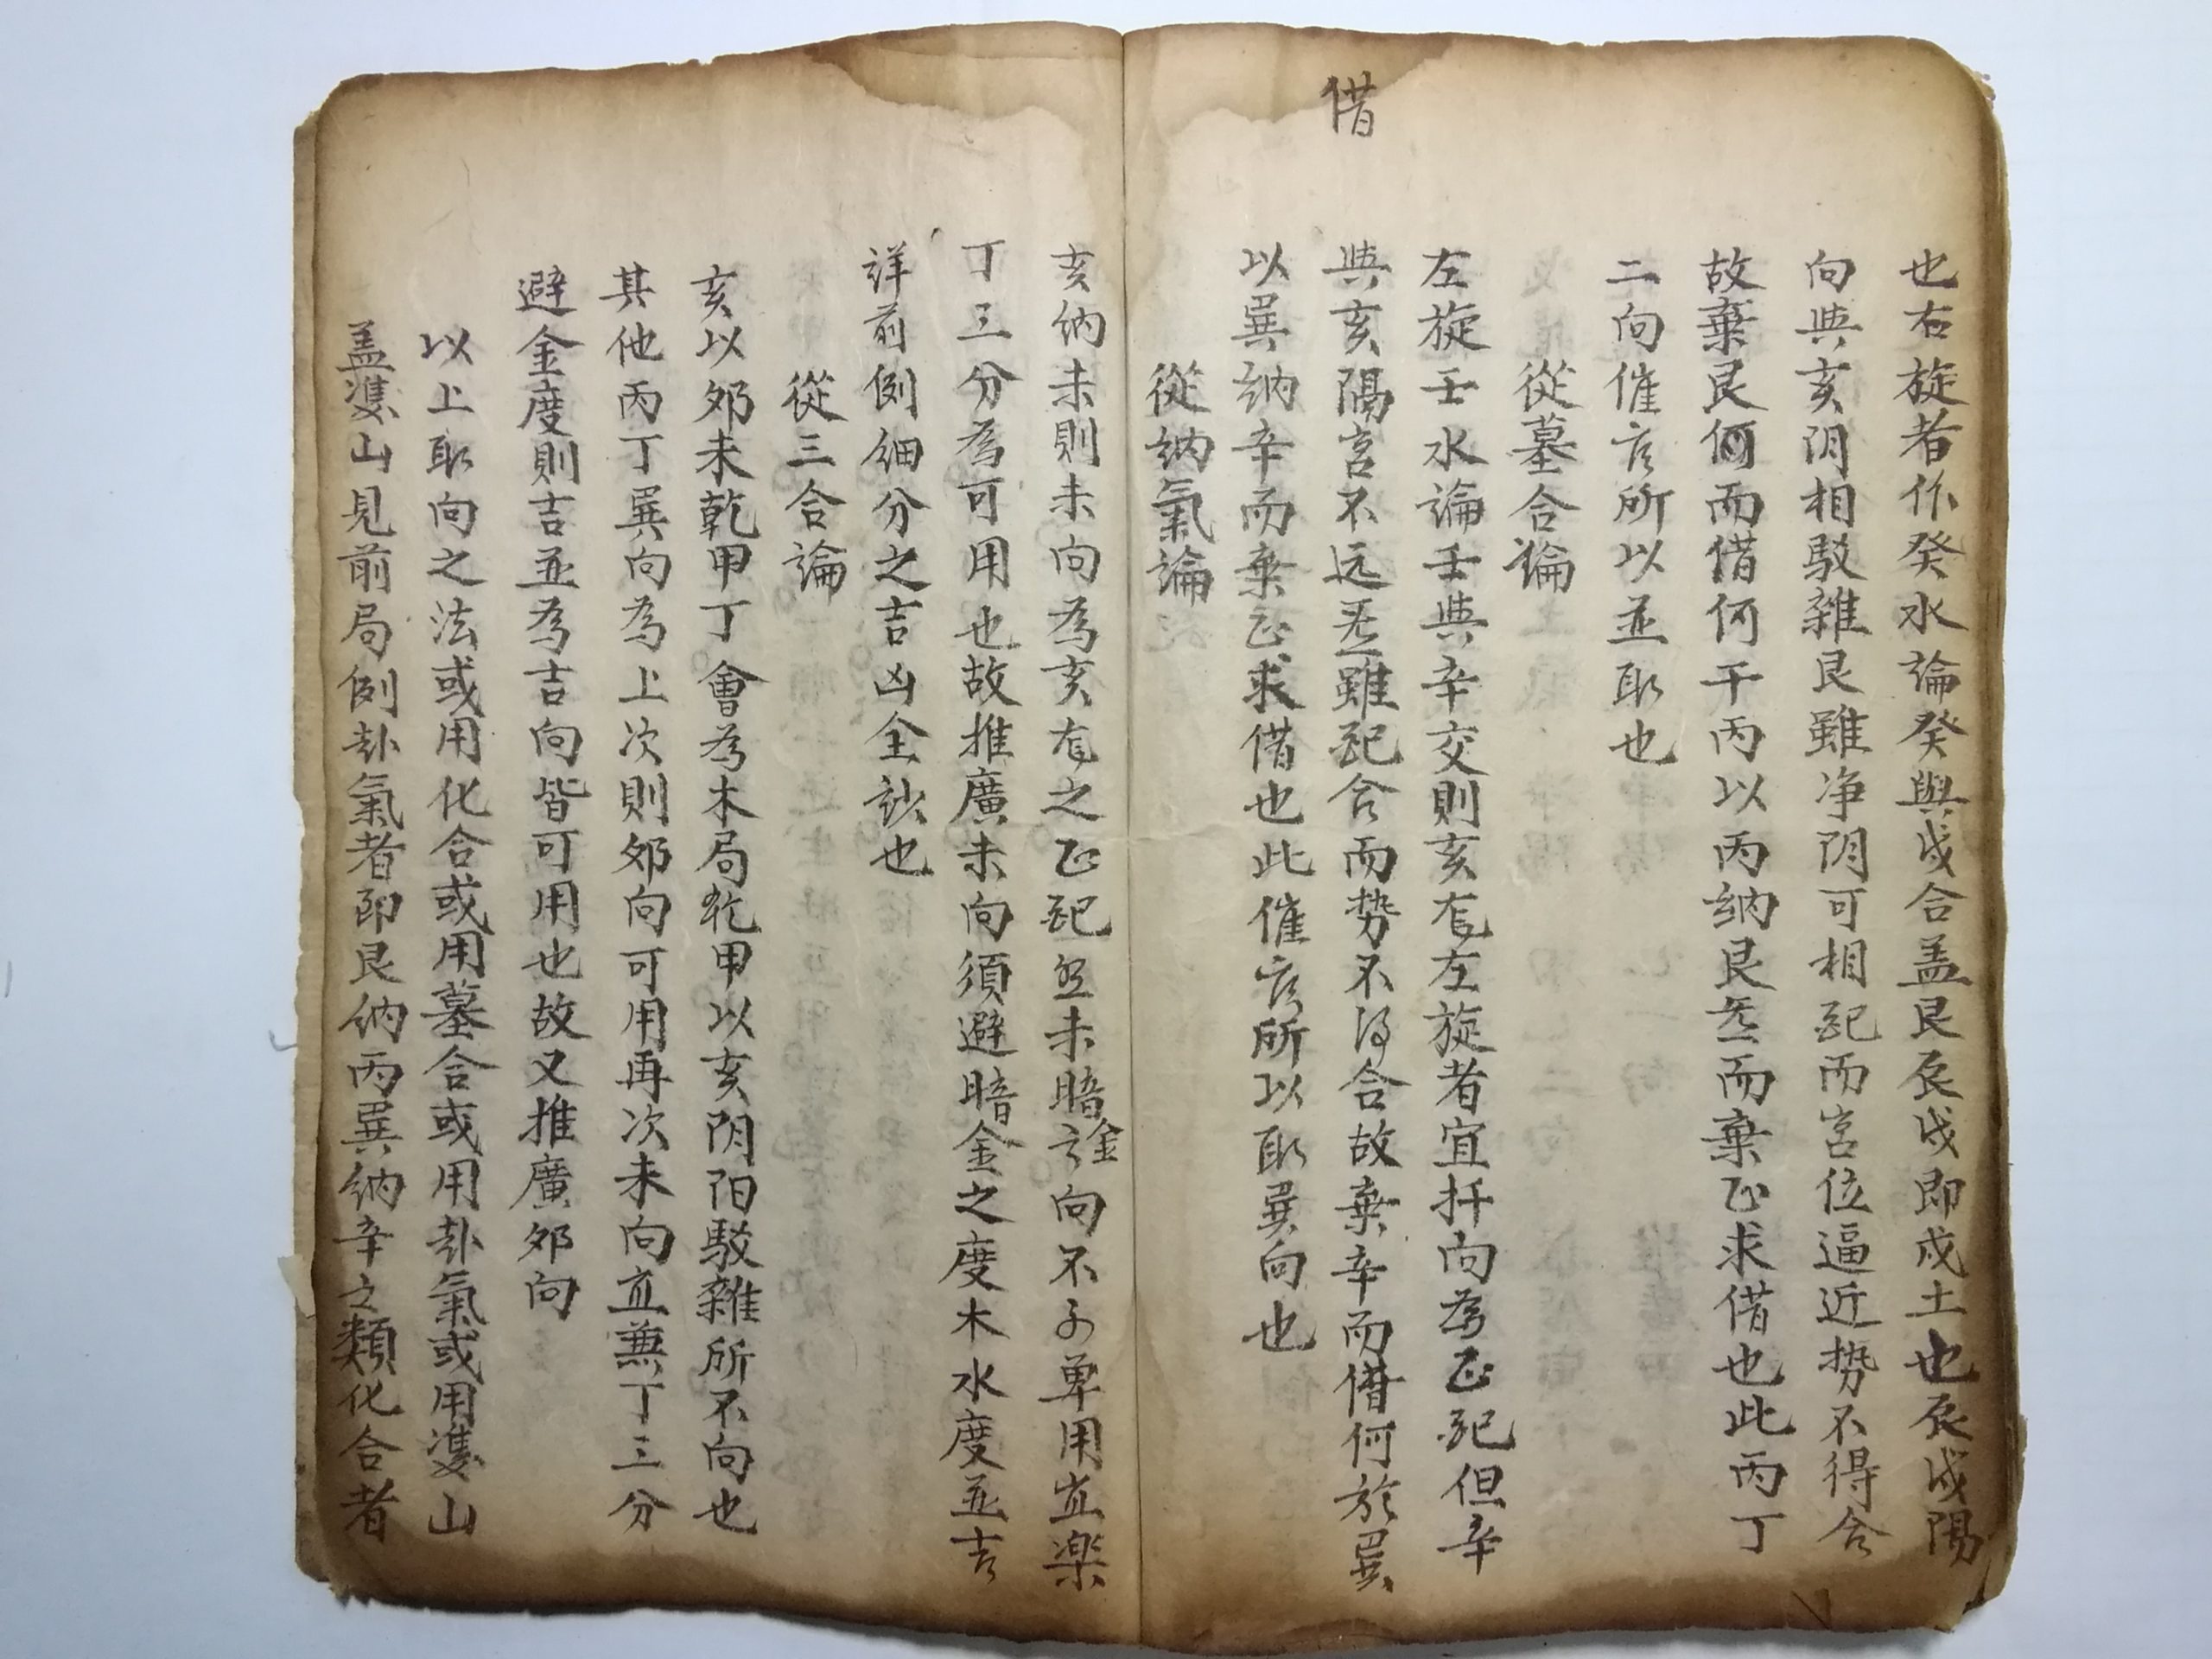 借
也右旋者作癸水論癸與戌合盖艮辰戌即戍土也辰戌陽
向與亥阴相駁雜艮雖净阴可相配而宫位逼近势不得合
故棄艮何而借何干丙以丙纳艮炁而棄正求借也此丙丁
二向催官所以並取也
從墓合論
左旋壬水論壬與辛交則亥龙左旋者宜扦向為正配但辛
與亥隔宫不远炁雖配合而势不得合故棄辛而借何於巽
以巽纳辛而棄正求借也此催官所以取巽向也
從纳氣論
亥纳未則未向為亥龙之正配但未暗金向不可单用宜兼
丁三分為可用也故推廣未向須避暗金之度木水度並吉
詳前例细分之吉凶全訣也
從三合論
亥以夘未乾甲丁會為木局乾甲以亥阴阳駁雜所不向也
其他丙丁巽向為上次則夘向可用再次未向宜兼丁三分
避金度則吉並為吉向皆可用也故又推廣夘向
以上取向之法或用化合或用墓合或用卦氣或用䨇山
盖䨇山見前局例卦氣者即艮纳丙巽纳辛之類化合者